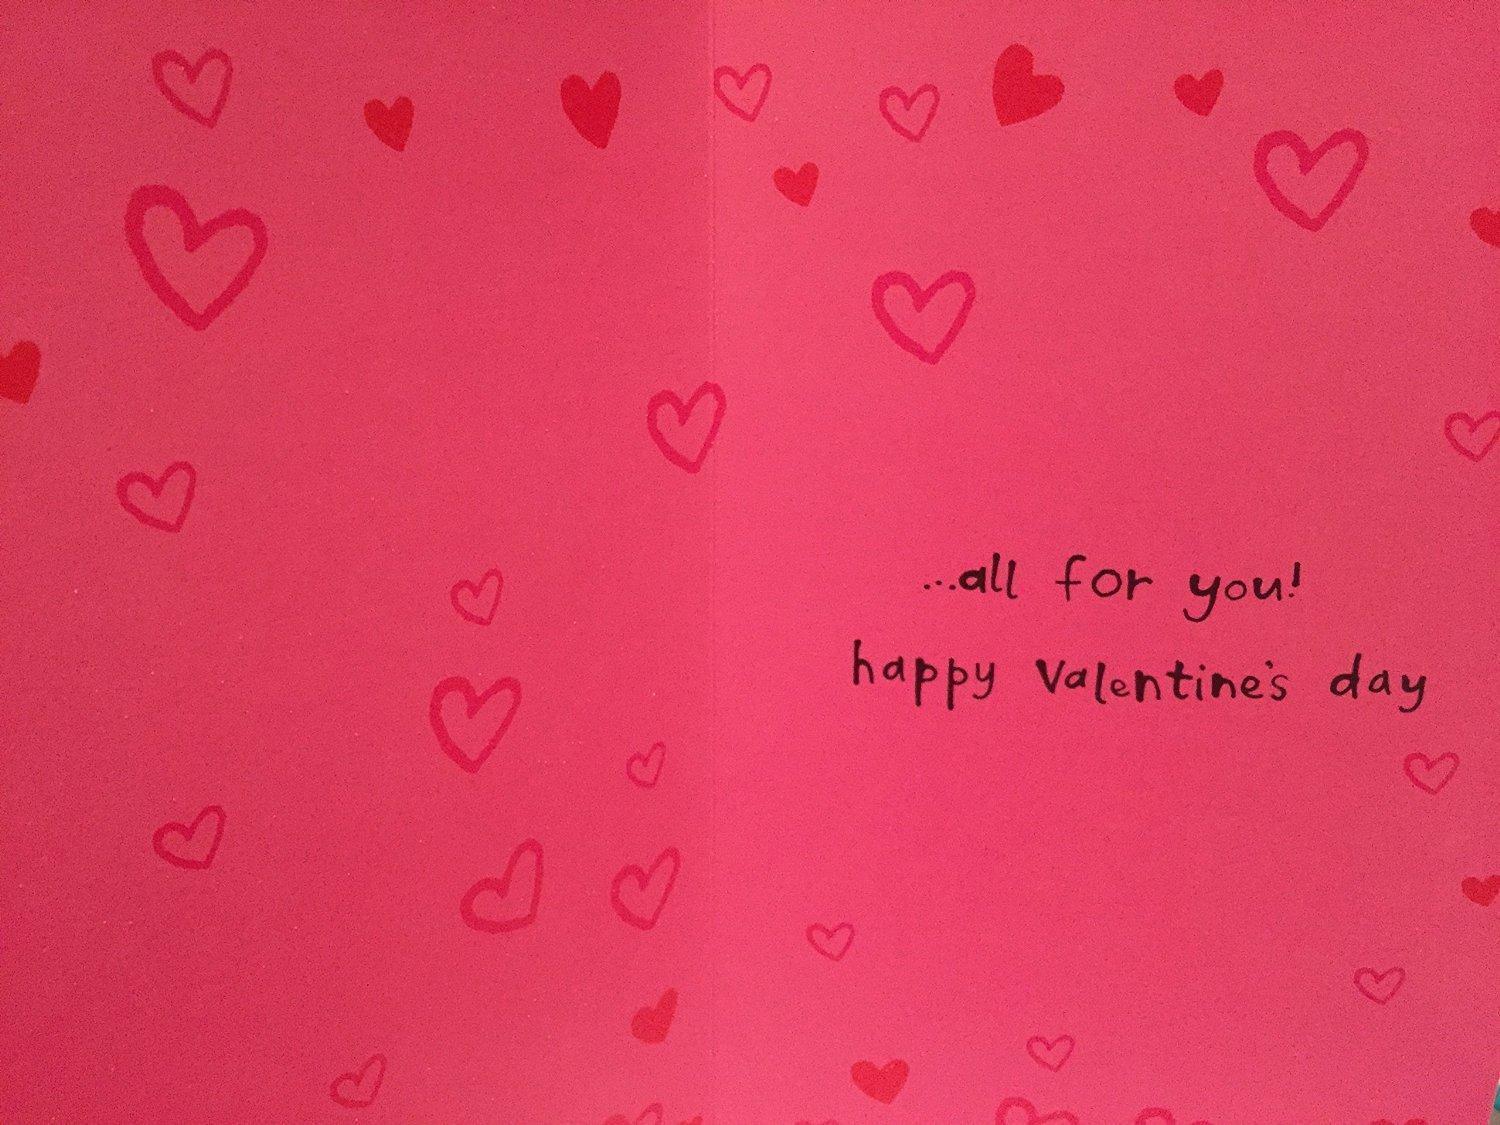 ...all for you!
happy valentine's day